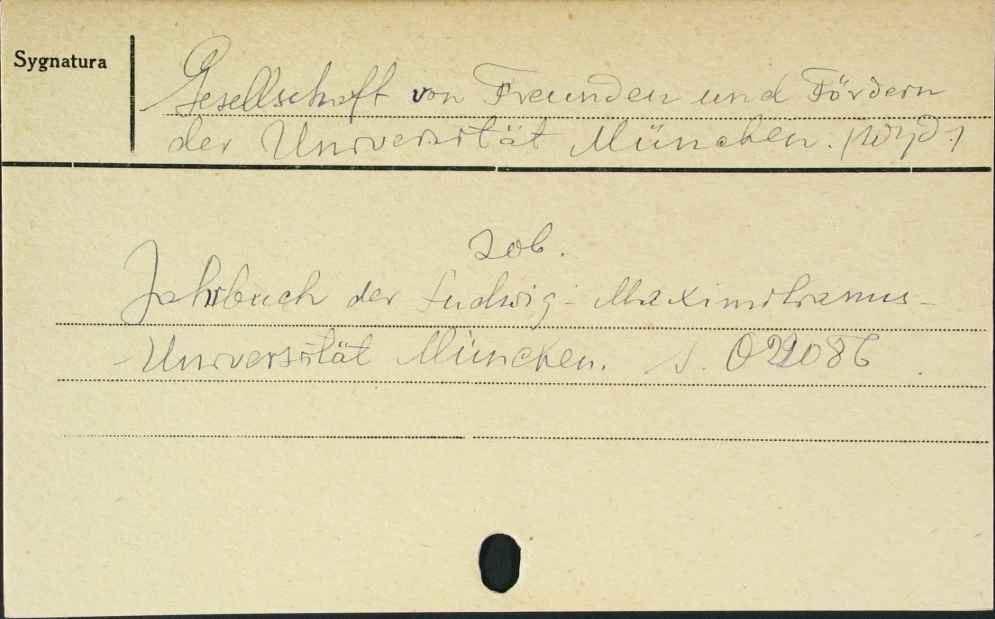 Sygnatura
Gesellschaft von Freunden und Fördern
der Universität München. (wyd.)
zob.
Jahrbuch der Ludwig-Maximilians-
Universität München. s.